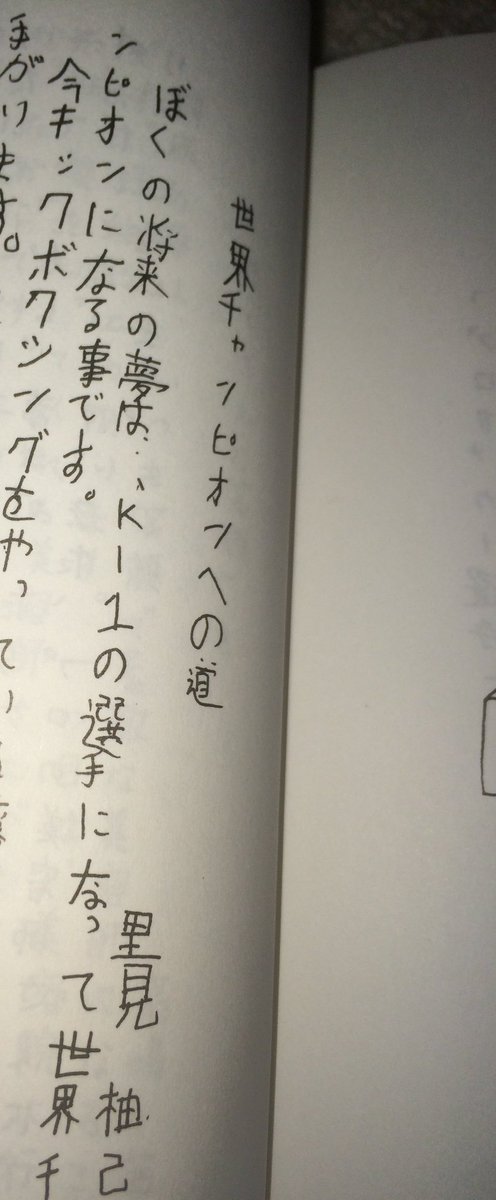 世界チャンピオンへの道
里見 柚己
ぼくの将来の夢は、K-1の選手になって世界チ
ンピオンになる事です。
今キックボクシングをやってい
手がります。